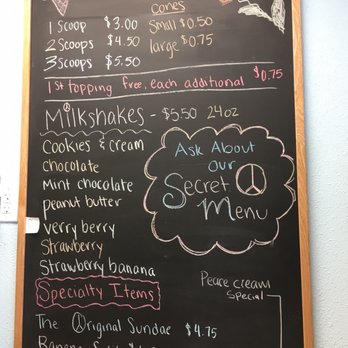 cones
1 Scoop $3.00
Small $0.50
2 Scoops $4.50
large $0.75
3 Scoops $5.50
1st topping free, each additional $0.75
Milkshakes - $5.50 24oz
Cookies & cream
chocolate
Mint chocolate
peanut butter
verry berry
Strawberry
Strawberry banana
Ask About
Our
Secret
Menu
Specialty Items
Peace cream
Special
The Original Sundae $4.75